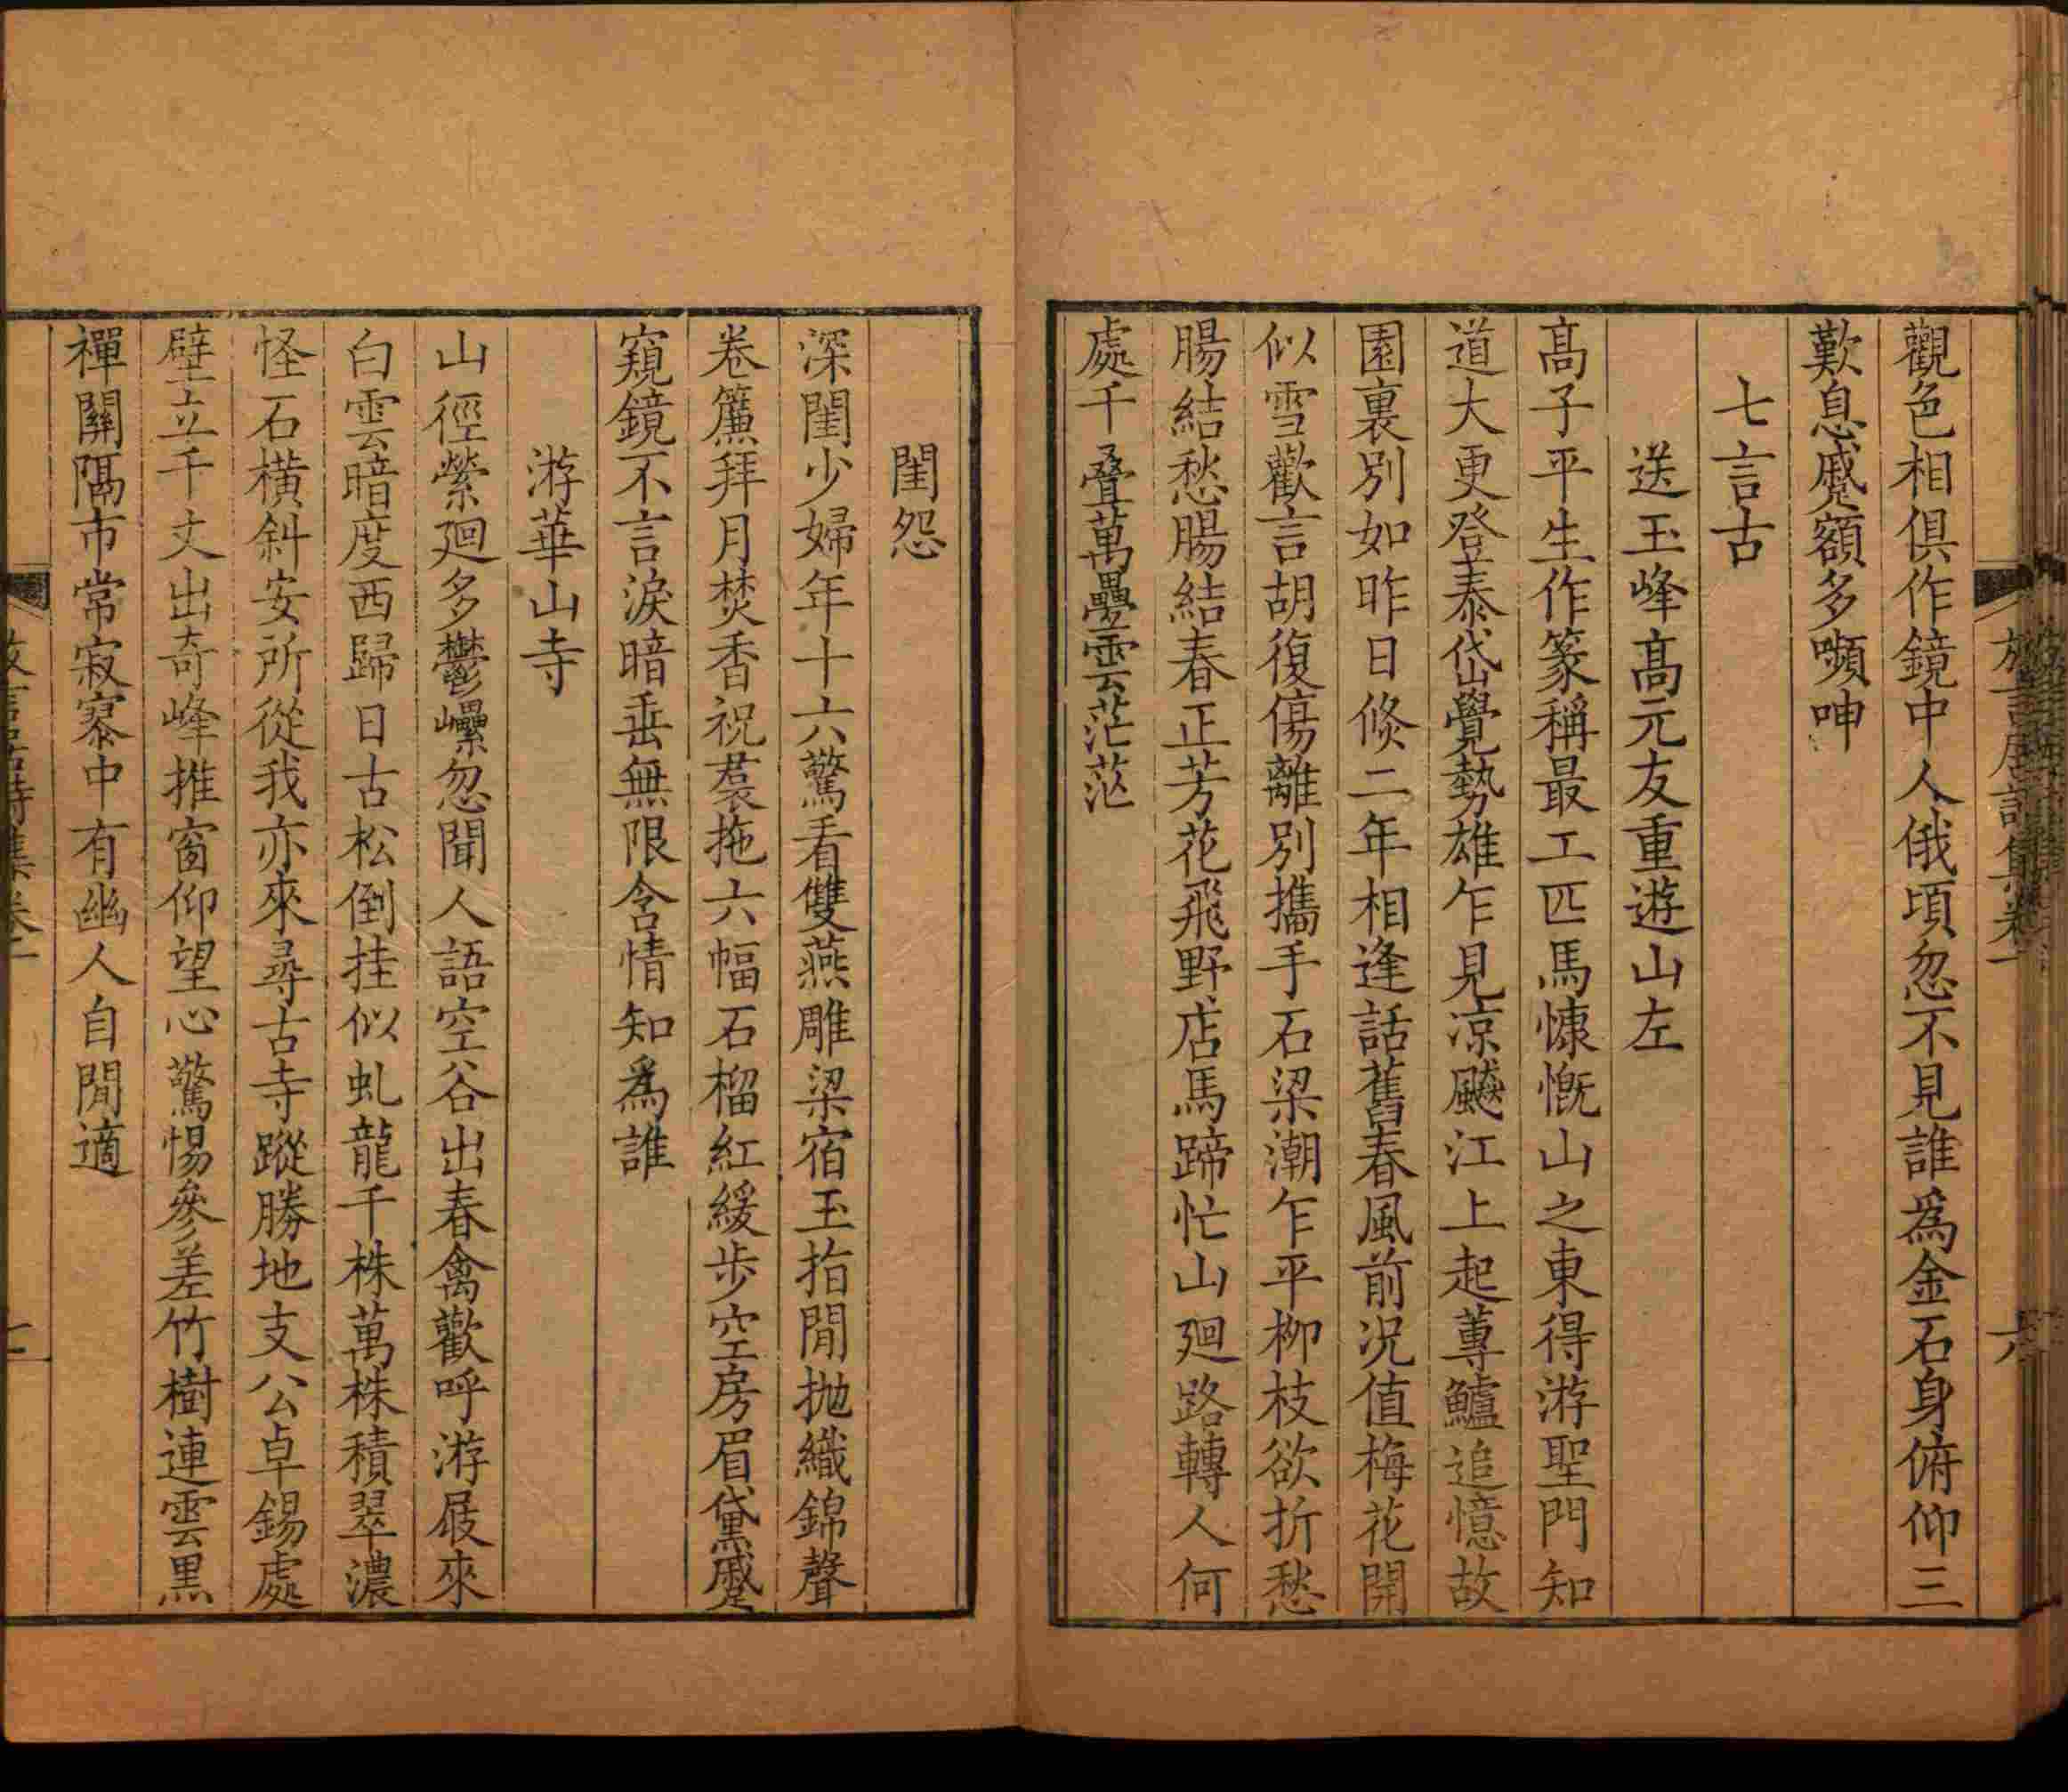 觀色相俱作鏡中人俄頃忽不見誰爲金石身俯仰三
歎息蹙額多嚬呻
七言古
送玉峰高元友重遊山左
高子平生作篆稱最工匹馬慷慨山之東得游聖門知
道大更登泰岱覺勢雄乍見凉飈江上起蓴鱸追憶故
園裏別如昨日倐二年相逢話舊春風前况值梅花開
似雪歡言胡復傷離別攜手石梁潮乍平柳枝欲折愁
腸結愁腸結春正芳花飛野店馬蹄忙山廻路轉人何
處千叠萬疊雲茫茫
閨怨
深閨少婦年十六驚看雙燕雕梁宿玉指閒拋織錦聲
卷簾拜月焚香祝裠拖六幅石榴紅緩步空房眉黛蹙
窺鏡不言淚暗垂無限含情知爲誰
游華山寺
山徑縈廻多鬱㠥忽聞人語空谷出春禽歡呼游屐來
白雲暗度西歸日古松倒挂似虬龍千株萬株積翠濃
怪石橫斜安所從我亦來尋古寺蹤勝地支公卓錫處
壁立千丈出奇峰推窗仰望心驚惕參差竹樹連雲黑
禪關隔市常寂寥中有幽人自閒適